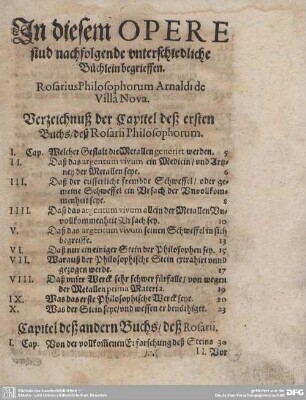 In diesem OPERE
sind nachfolgende vnterschiedliche
Büchlein begrieffen.
Rosarius Philosophorum Arnaldi de
Villâ Nova.
Verzeichnuß der Capitel deß ersten
Buchs/ deß Rosarii Philosophorum.
I. Cap. Welcher Gestalt die Metallen generirt werden. 5
II. Daß das argentum vivum ein Medicin/ vnd Artz-
ney der Metallen seye. 6
III. Daß der eusserliche frembde Schweffel/ oder ge-
meine Schweffel ein Vrsach der Vnvollkom-
menheit seye. 8
IIII. Daß das argentum vivum allein der Metallen Vn-
vollkommenheit Vrsach sey. 10
V. Daß das argentum vivum seinen Schweffel in sich
begreiffe. 13
VI. Daß nur ein einiger Stein der Philosophen sey. 15
VII. Warauß der Philosophische Stein extrahirt vnnd
gezogen werde. 17
VIII. Daß vnser Werck sehr schwer fürfalle/ von wegen
der Metallen prima Materia. 19
IX. Was das erste Philosophische Werck seye. 20
X. Was der Stein seye/ vnd wessen er benöthiget. 23
Capitel deß andern Buchs/ deß Rosarii.
I. Cap. Von der vollkommenen Erforschung deß Steins 30
II. Vor